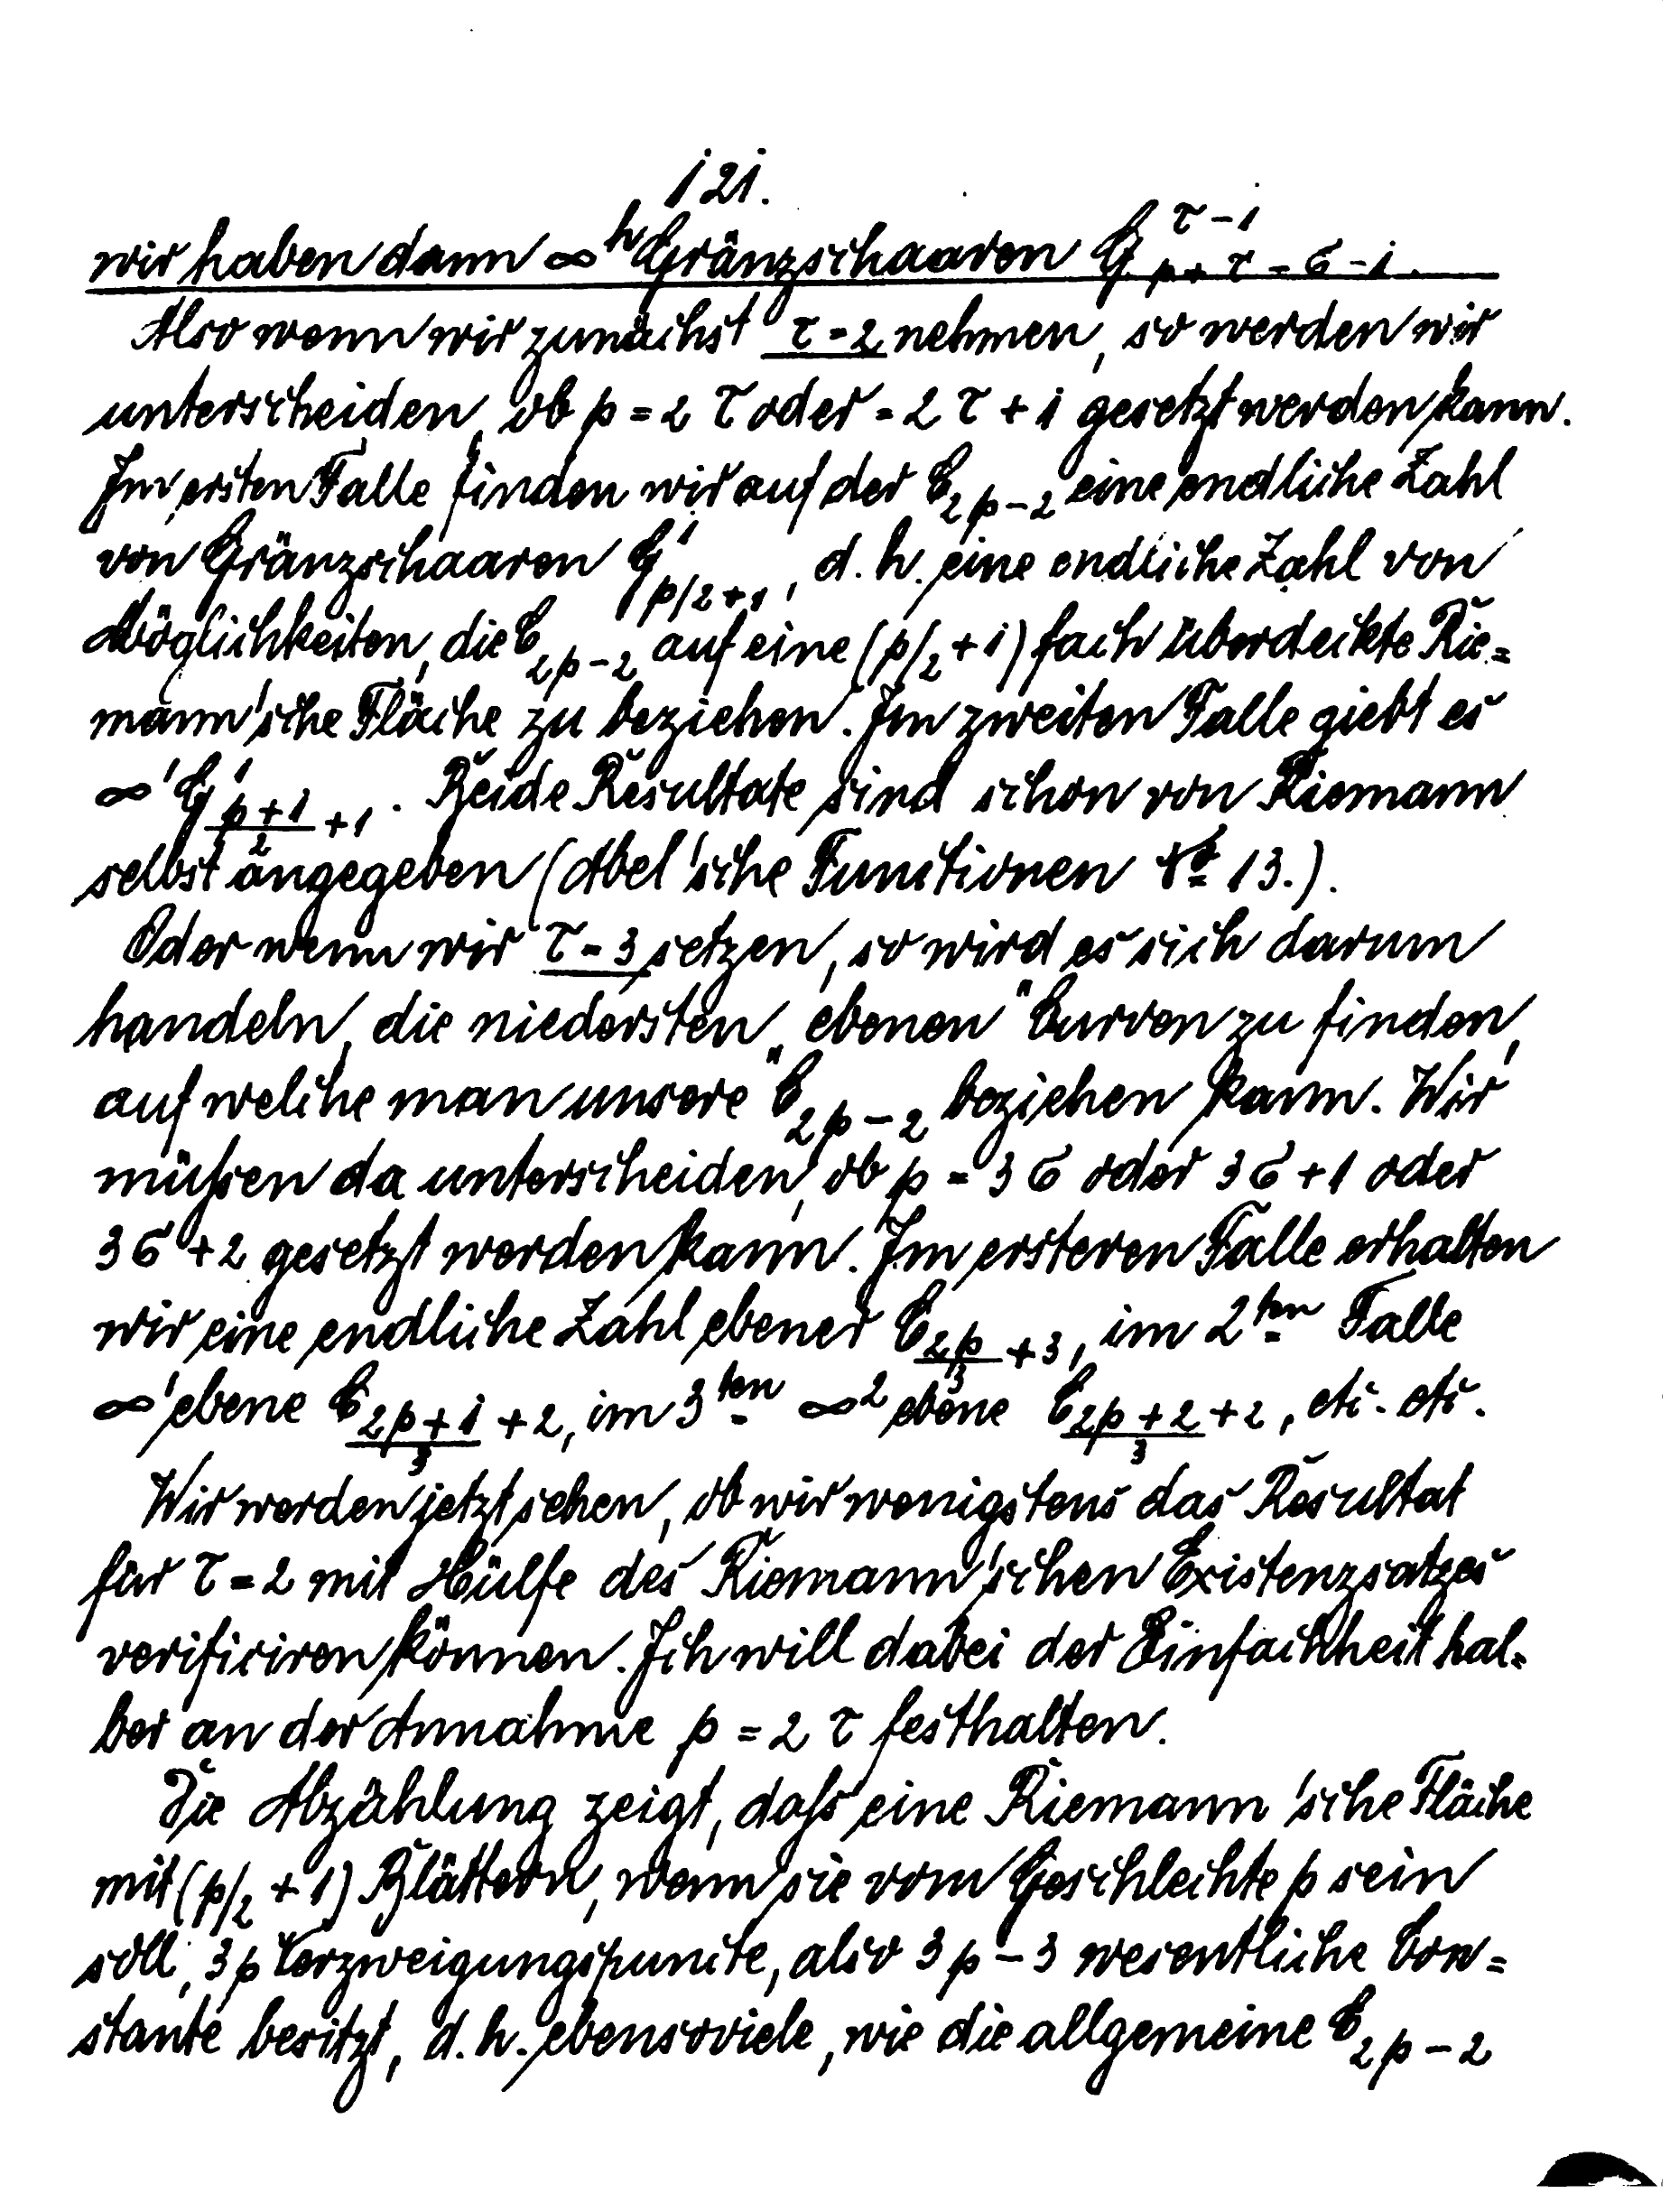 121.
wir haben dann ∞^h Gränzschaaren G^{τ-1}_{p+τ-σ-1}.
Also wenn wir zunächst τ=2 nehmen, so werden wir
unterscheiden, ob p = 2τ oder = 2τ+1 gesetzt werden kann.
Im ersten Falle finden wir auf der C_{2p-2} eine endliche Zahl
von Gränzschaaren G^1_{p/2+1}, d.h. eine endliche Zahl von
Möglichkeiten, die C_{2p-2} auf eine (p/2+1) fach überdeckte Rie=
mann'sche Fläche zu beziehen. Im zweiten Falle giebt es
∞^1 G^1_{\frac{p+1}{2}+1}. Beide Resultate sind schon von Riemann
selbst angegeben (Abel'sche Functionen № 13.).
Oder wenn wir τ=3 setzen, so wird es sich darum
handeln, die niedersten „ebenen“ Curven zu finden,
auf welche man unsere C_{2p-2} beziehen kann. Wir
müßen da unterscheiden, ob p = 3σ oder 3σ+1 oder
3σ+2 gesetzt werden kann. Im ersteren Falle erhalten
wir eine endliche Zahl ebener C_{\frac{2p}{3}+3}, im 2ten Falle
∞^1 ebene C_{\frac{2p+1}{3}+2}, im 3ten ∞^2 ebene C_{\frac{2p+2}{3}+2}, etc. etc.
Wir werden jetzt sehen, ob wir wenigstens das Resultat
für τ=2 mit Hülfe des Riemann'schen Existenzsatzes
verificiren können. Ich will dabei der Einfachheit hal=
ber an der Annahme p = 2τ festhalten.
Die Abzählung zeigt, daß eine Riemann'sche Fläche
mit (p/2+1) Blättern, wenn sie vom Geschlechte p sein
soll, 3p Verzweigungspuncte, also 3p-3 wesentliche Con=
stante besitzt, d.h. ebensoviele, wie die allgemeine C_{2p-2}